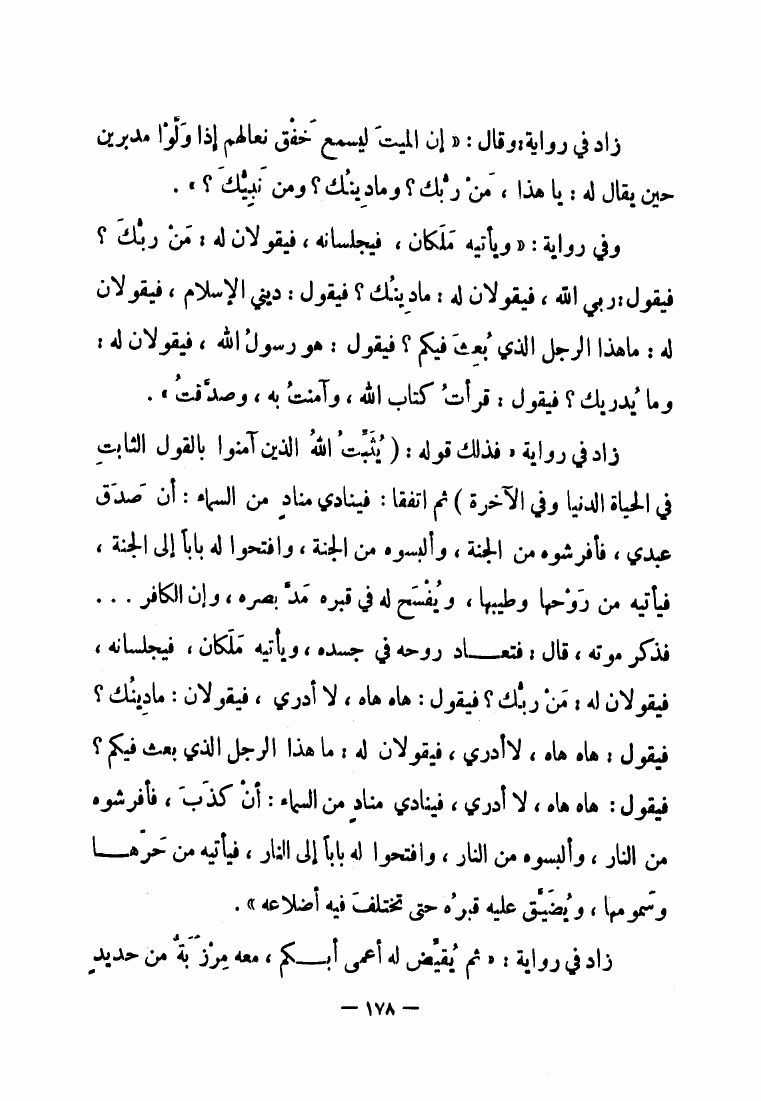 زاد في رواية : وقال : « إن الميتَ ليسمع خَفْق نعالهم إذا وَلَّوْا مدبرين
حين يقال له : يا هذا ، مَنْ ربُّك ؟ وما دِينُك ؟ ومن نَبِيُّكَ ؟ » .
وفي رواية : « ويأتيه مَلَكان ، فيجلسانه ، فيقولان له : مَنْ ربُّكَ ؟
فيقول : ربي الله ، فيقولان له : ما دِينُك ؟ فيقول : ديني الإسلام ، فيقولان
له : ما هذا الرجل الذي بُعِثَ فيكم ؟ فيقول : هو رسولُ الله ، فيقولان له :
وما يُدريك ؟ فيقول : قرأتُ كتاب الله ، وآمنتُ به ، وصدَّقتُ » .
زاد في رواية « فذلك قوله : ( يُثَبِّتُ اللهُ الذين آمنوا بالقول الثابتِ
في الحياة الدنيا وفي الآخرة ) ثم اتفقا : فينادي منادٍ من السماء : أن صَدَق
عبدي ، فأفرشوه من الجنة ، وألبسوه من الجنة ، وافتحوا له باباً إلى الجنة ،
فيأتيه من رَوْحها وطيبها ، ويُفْسَح له في قبره مَدَّ بصره ، وإن الكافر ...
فذكر موته ، قال : فتعـــاد روحه في جسده ، ويأتيه مَلَكان ، فيجلسانه ،
فيقولان له : مَنْ ربُّك ؟ فيقول : هاه هاه ، لا أدري ، فيقولان : ما دِينُك ؟
فيقول : هاه هاه ، لا أدري ، فيقولان له : ما هذا الرجل الذي بعث فيكم ؟
فيقول : هاه هاه ، لا أدري ، فينادي منادٍ من السماء : أنْ كَذَبَ ، فأفرشوه
من النار ، وألبسوه من النار ، وافتحوا له باباً إلى النار ، فيأتيه من حَرّهـــا
وسَمومها ، ويُضَيَّق عليه قبرُه حتى تختلفَ فيه أضلاعه » .
زاد في رواية : « ثم يُقَيَّض له أعمى أبـــكم ، معه مِرْزَبَةٌ من حديدٍ
— ١٧٨ —